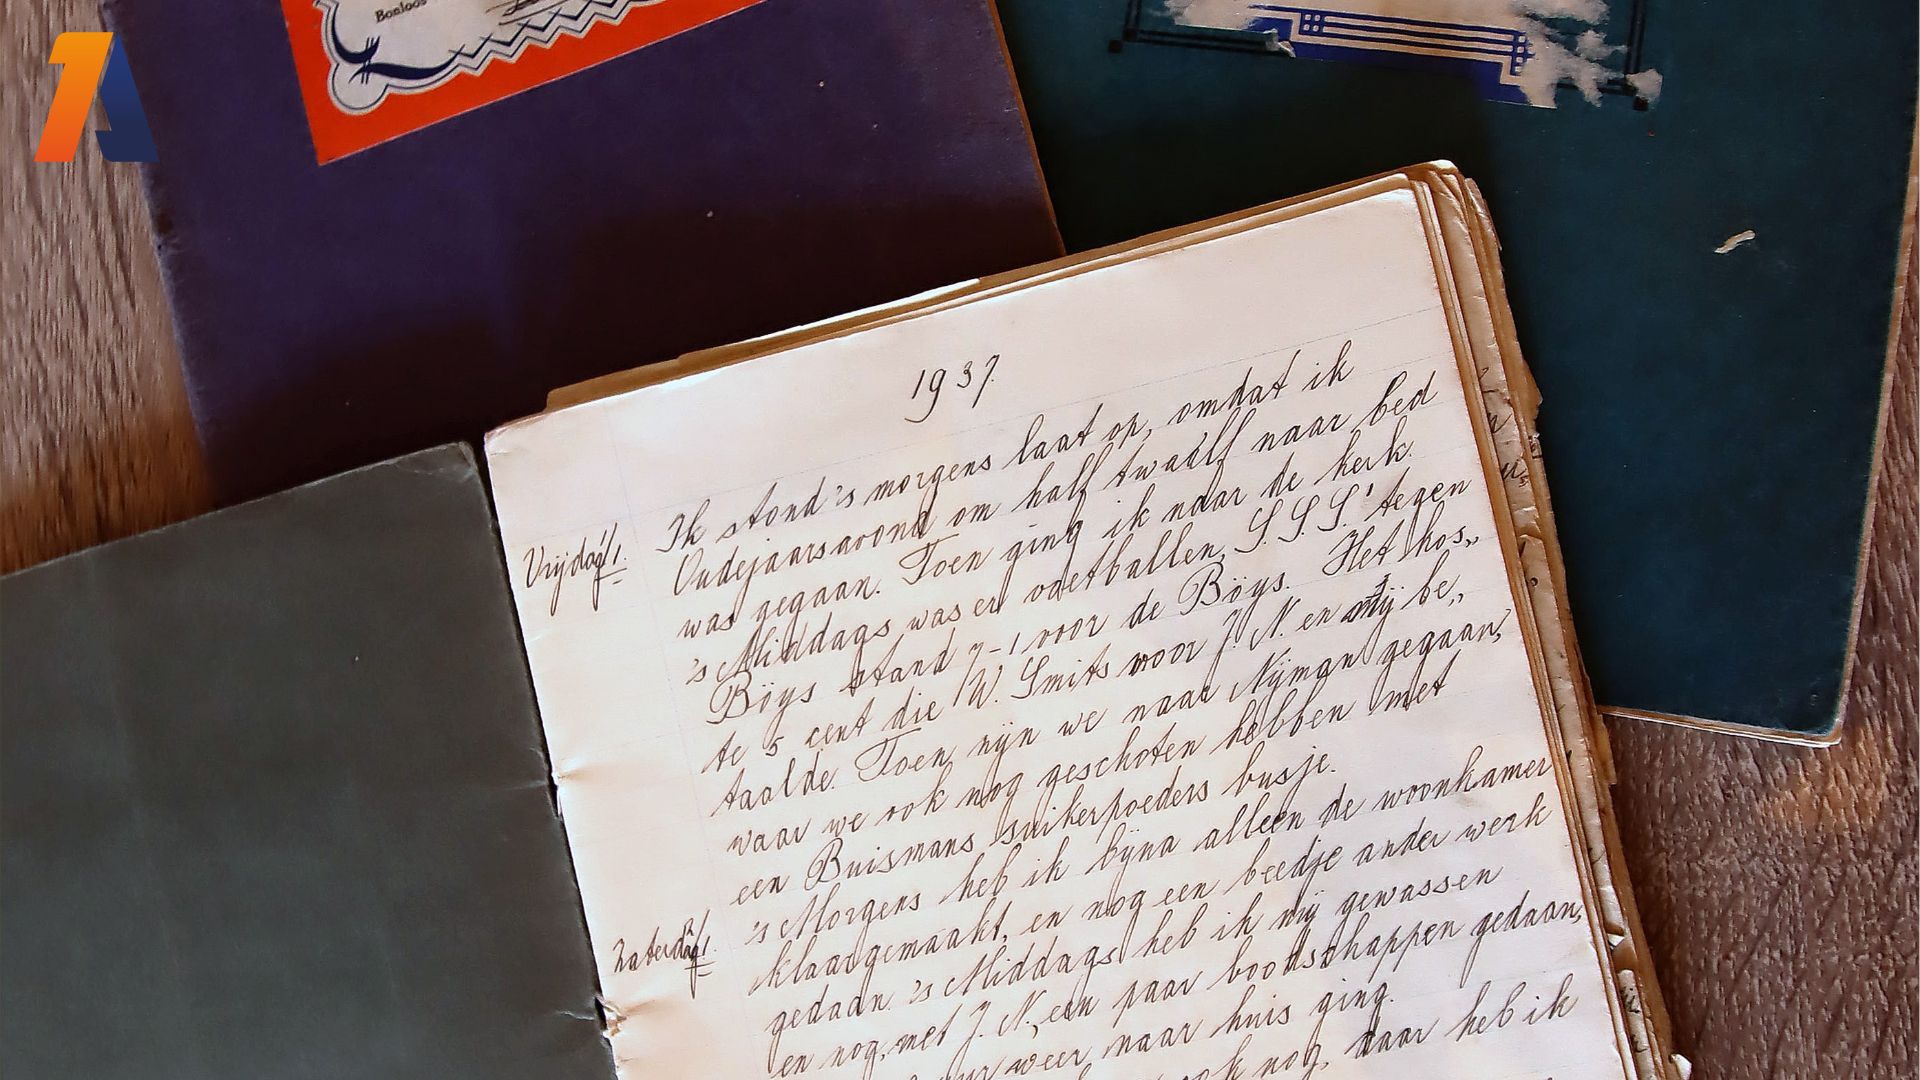 1A
Bonloos
1937.
Vrijdag 1/1.
Ik stond 's morgens laat op, omdat ik
Oudejaarsavond om half twaalf naar bed
was gegaan. Toen ging ik naar de kerk.
's Middags was er voetballen, S.S.S.' tegen
Böys stand 7-1 voor de Böys. Het kos„
te 5 cent die W. Smits voor J. N. en mij be„
taalde. Toen zijn we naar Nijman gegaan,
waar we ook nog geschoten hebben met
een Buismans suikerpoeders busje.
Zaterdag 2/1.
's Morgens heb ik bijna alleen de woonkamer
klaargemaakt, en nog een beedje ander werk
gedaan. 's Middags heb ik mij gewassen
en nog, met J. N., een paar boodschappen gedaan,
weer naar huis ging.
ook nog, daar heb ik